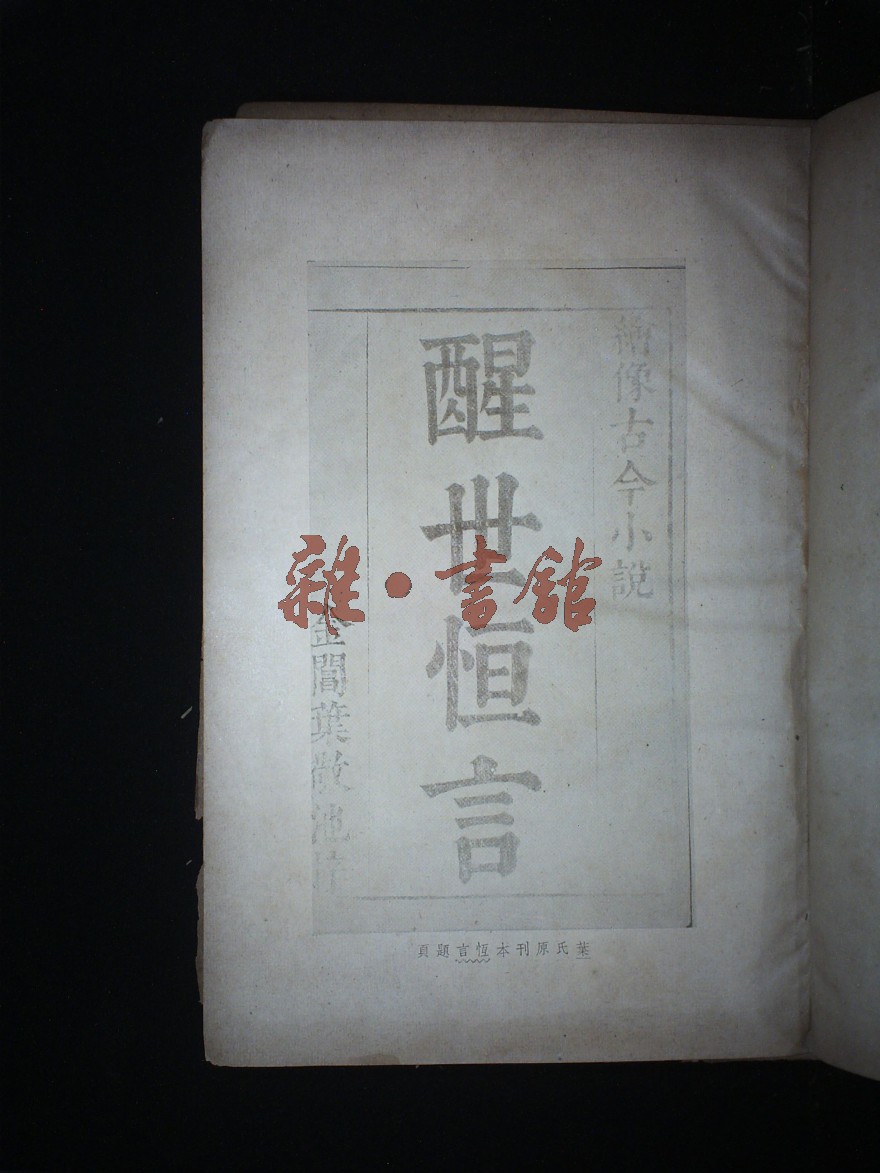 繪像古今小說
醒世恒言
金閶葉敬池梓
葉氏原刊本恆言題頁
雜·書館